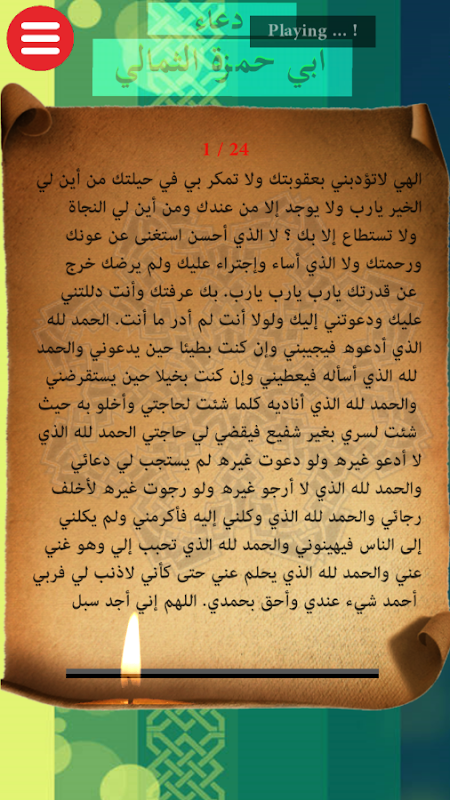 دعاء
Playing ... !
ابي حمزة الثمالي
1 / 24
الهي لاتؤدبني بعقوبتك ولا تمكر بي في حيلتك من أين لي
الخير يارب ولا يوجد إلا من عندك ومن أين لي النجاة
ولا تستطاع إلا بك ؟ لا الذي أحسن استغنى عن عونك
ورحمتك ولا الذي أساء وإجتراء عليك ولم يرضك خرج
عن قدرتك يارب يارب يارب. بك عرفتك وأنت دللتني
عليك ودعوتني إليك ولولا أنت لم أدر ما أنت. الحمد لله
الذي أدعوه فيجيبني وإن كنت بطيئا حين يدعوني والحمد
لله الذي أسأله فيعطيني وإن كنت بخيلا حين يستقرضني
والحمد لله الذي أناديه كلما شئت لحاجتي وأخلو به حيث
شئت لسري بغير شفيع فيقضي لي حاجتي الحمد لله الذي
لا أدعو غيره ولو دعوت غيره لم يستجب لي دعائي
والحمد لله الذي لا أرجو غيره ولو رجوت غيره لأخلف
رجائي والحمد لله الذي وكلني إليه فأكرمني ولم يكلني
إلى الناس فيهينوني والحمد لله الذي تحبب إلي وهو غني
عني والحمد لله الذي يحلم عني حتى كأني لاذنب لي فربي
أحمد شيء عندي وأحق بحمدي. اللهم إني أجد سبل